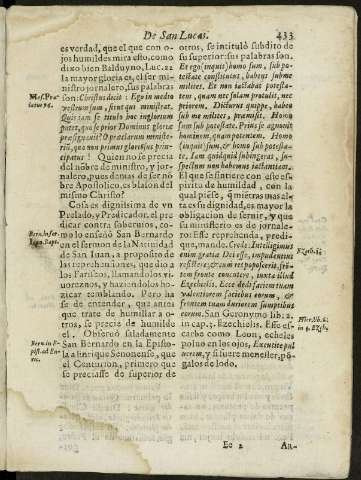 De San Lucas.
433
es verdad, que el que con o-
jos humildes mira esto, como
dixo bien Balduyno, Luc. 22
la mayor gloria es, el ser mi-
nistro jornalero, sus palabras
son: Christus dicit: Ego in medio
vestrum sum, sicut qui ministrat.
Quis iam se titulo hoc inglorium
putet, quo se prior Dominus gloriæ
præsignauit? O præclarum ministe-
rium, quo non primus gloriosius prin-
cipatus! Quien no se precia
del nōbre de ministro, y jor-
nalero, pues demas de ser nō-
bre Apostolico, es blason del
mismo Christo?
Cosa es dignisima de vn
Prelado, y Predicador, el pre-
dicar contra soberuios, co-
mo lo enseñò San Bernardo
en el sermon de la Natiuidad
de San Iuan, a proposito de
las reprehensiones, que dio a
los Fariseos, llamandolos vi-
uoreznos, y haziendolos ho-
zicar temblando. Pero ha
se de entender, que antes
que trate de humillar a o-
tros, se precie de humilde
el. Obseruò saladamente
San Bernardo en la Episto-
la a Enrique Senonense, que
el Centurion, primero que
se preciasse de superior de
otros, se intitulò subdito de
su superior: sus palabras son.
Et ego (inquit) homo sum, sub po-
testate constitutus, habens sub me
milites. Et non iactabat potesta-
tem, quam nec solam protulit, nec
priorem. Dicturus quippe, habeo
sub me milites, præmisit. Homo
sum sub potestate. Prius se agnouit
hominem, quam potentem. Homo
(inquit) sum, & homo sub potesta-
te. Iam quidquid subingeras, su-
spectum non habemus iactantiam.
El que se sintiere con este es-
piritu de humildad, con la
qual puesto, q̃ miẽtras mas al-
ta es su dignidad, es mayor la
obligacion de seruir, y que
su ministerio es de jornale-
ro: Esse reprehenda, predi-
que, mande. Crede: Intelligimus
enim gratia Dei esse, impudentius
resistere, & cum res poposcerit, fron-
tem fronte concutere, iuxta illud
Ezechielis. Ecce dedi faciem tuam
valentiorem faciebus eorum, &
frontem tuam duriorem frontibus
eorum. San Geronymo lib. 2.
in cap. 3. Ezechielis. Esse es-
cache como Leon, echeles
poluo en los ojos, Excutite pul
uerem, y si fuere menester, pō-
galos de lodo.
Ee 2
Au-
Bern. in Epist. ad Enric.
Ezech. 3.